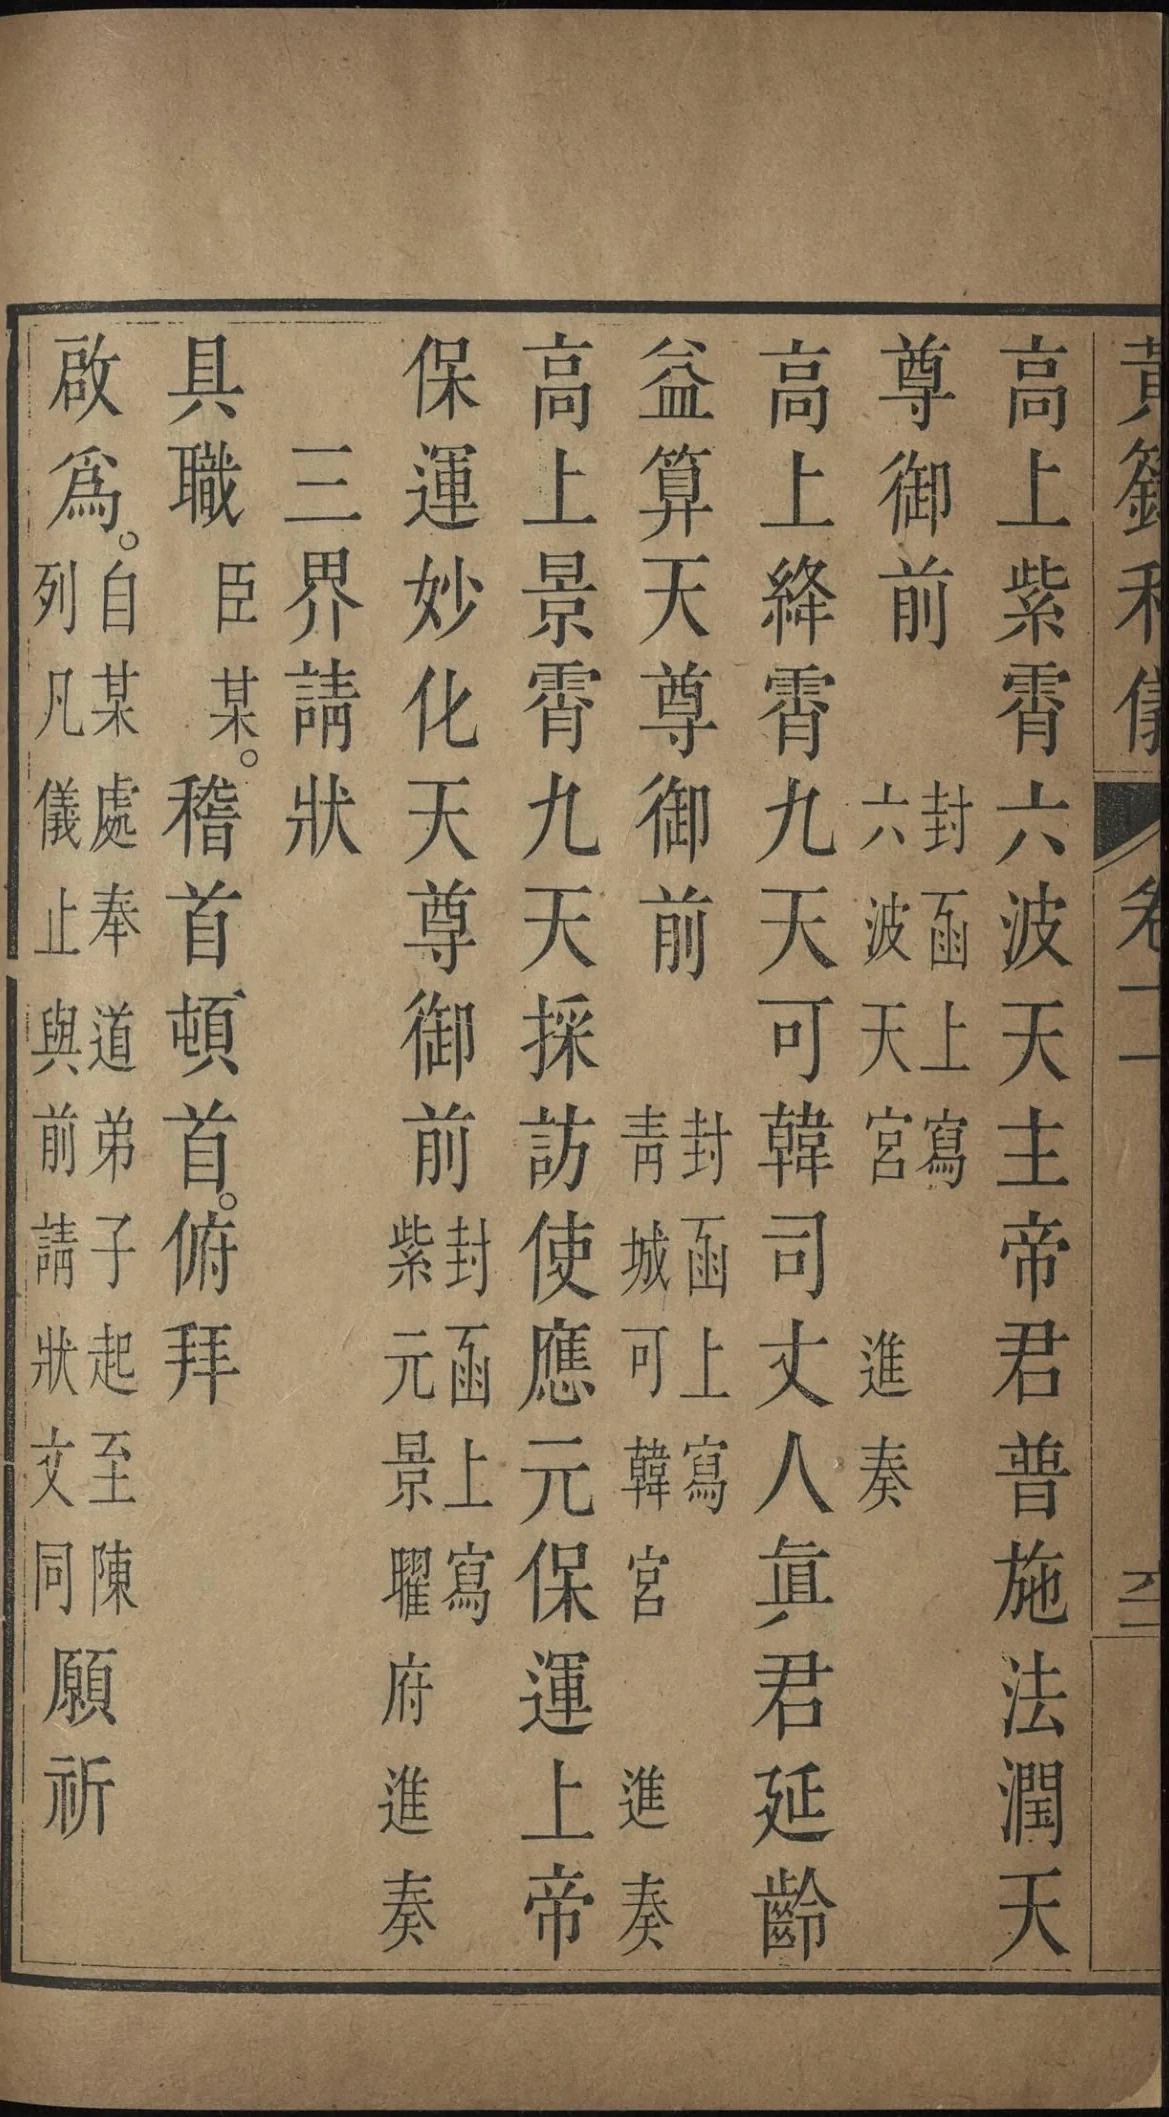 高上紫霄六波天主帝君普施法潤天
尊御前封函上寫六波天宮進奏
高上絳霄九天可韓司丈人眞君延齡
益算天尊御前封函上寫靑城可韓宮進奏
高上景霄九天採訪使應元保運上帝
保運妙化天尊御前封函上寫紫元景曜府進奏
三界請狀
具職臣某。稽首頓首。俯拜
啟爲。自某處奉道弟子起至陳列凡儀止與前請狀文同願祈